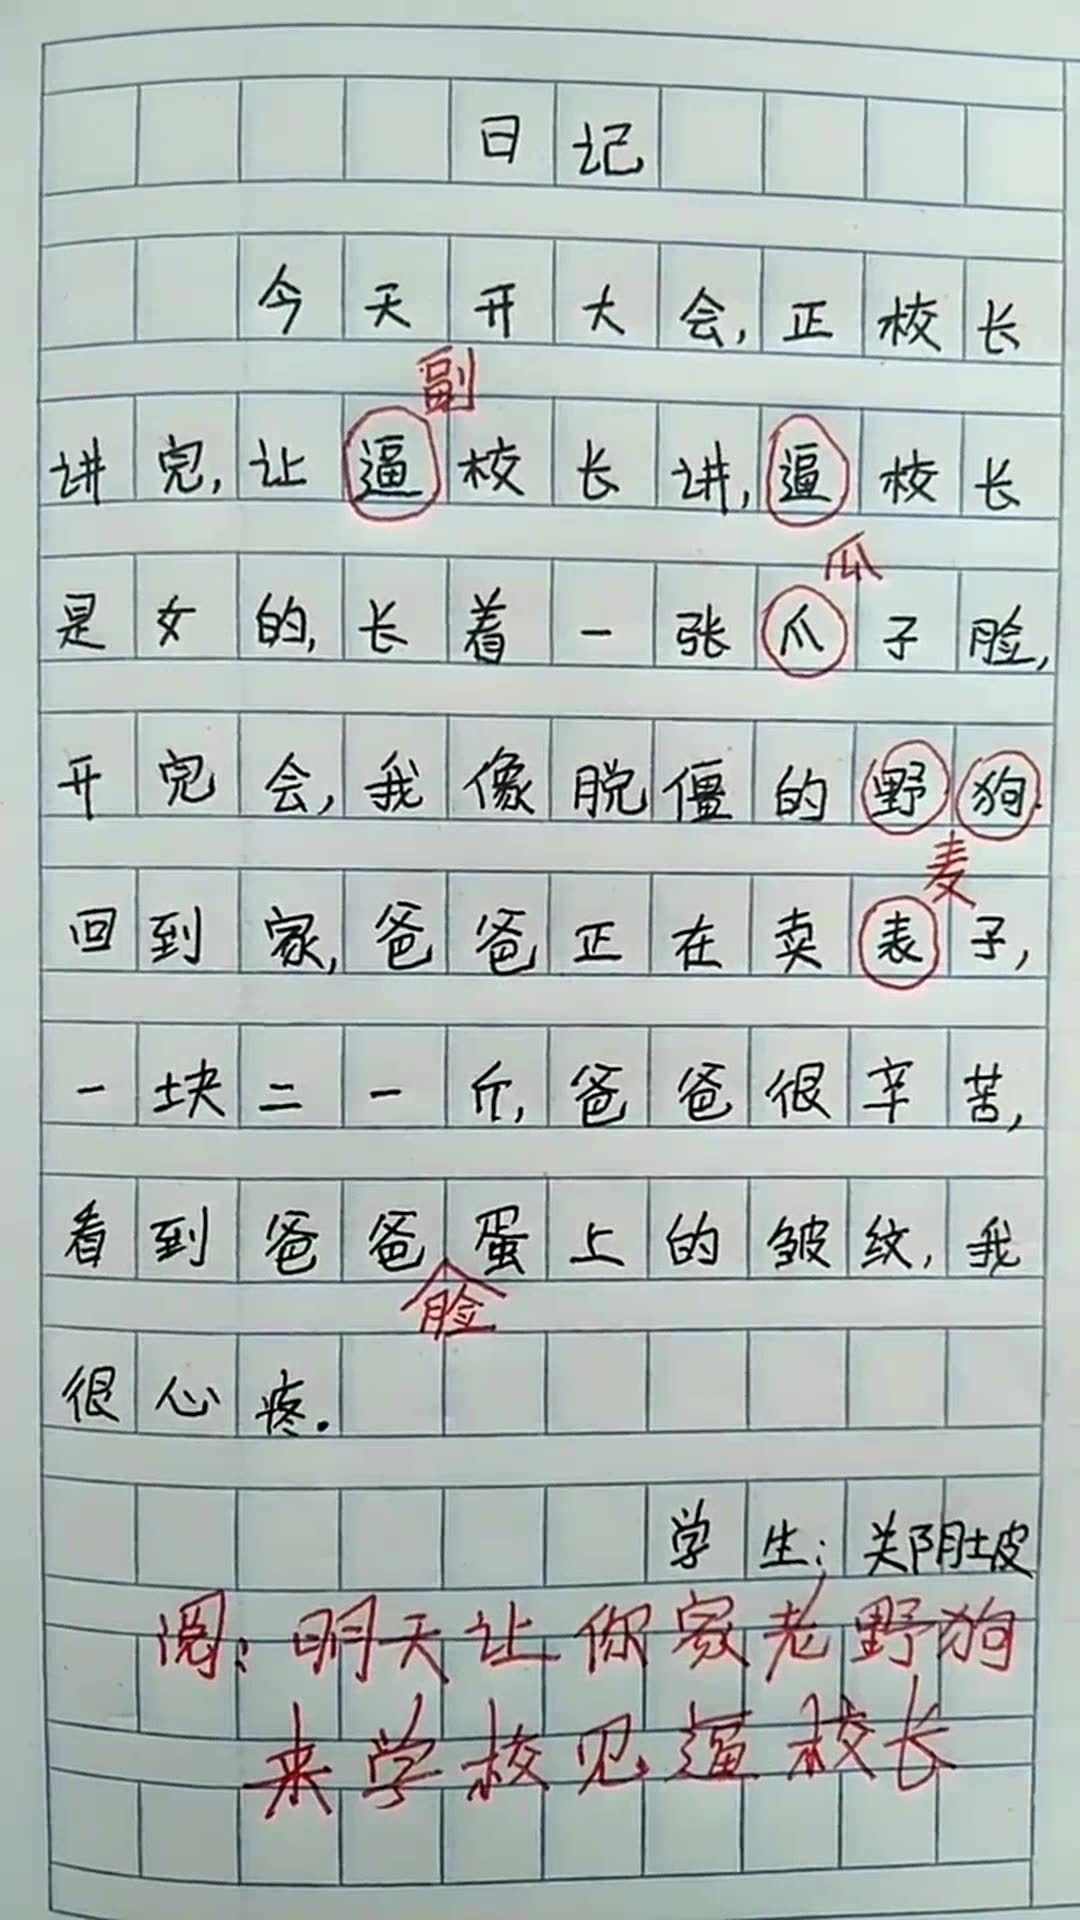 日记
今天开大会,正校长
副
讲完,让逼校长讲,逼校长
瓜
是女的,长着一张爪子脸,
开完会,我像脱僵的野狗.
麦
回到家,爸爸正在卖表子,
一块二一斤,爸爸很辛苦,
看到爸爸蛋上的皱纹,我
脸
很心疼.
学生:郑阴坡
阅:明天让你家老野狗
来学校见逼校长